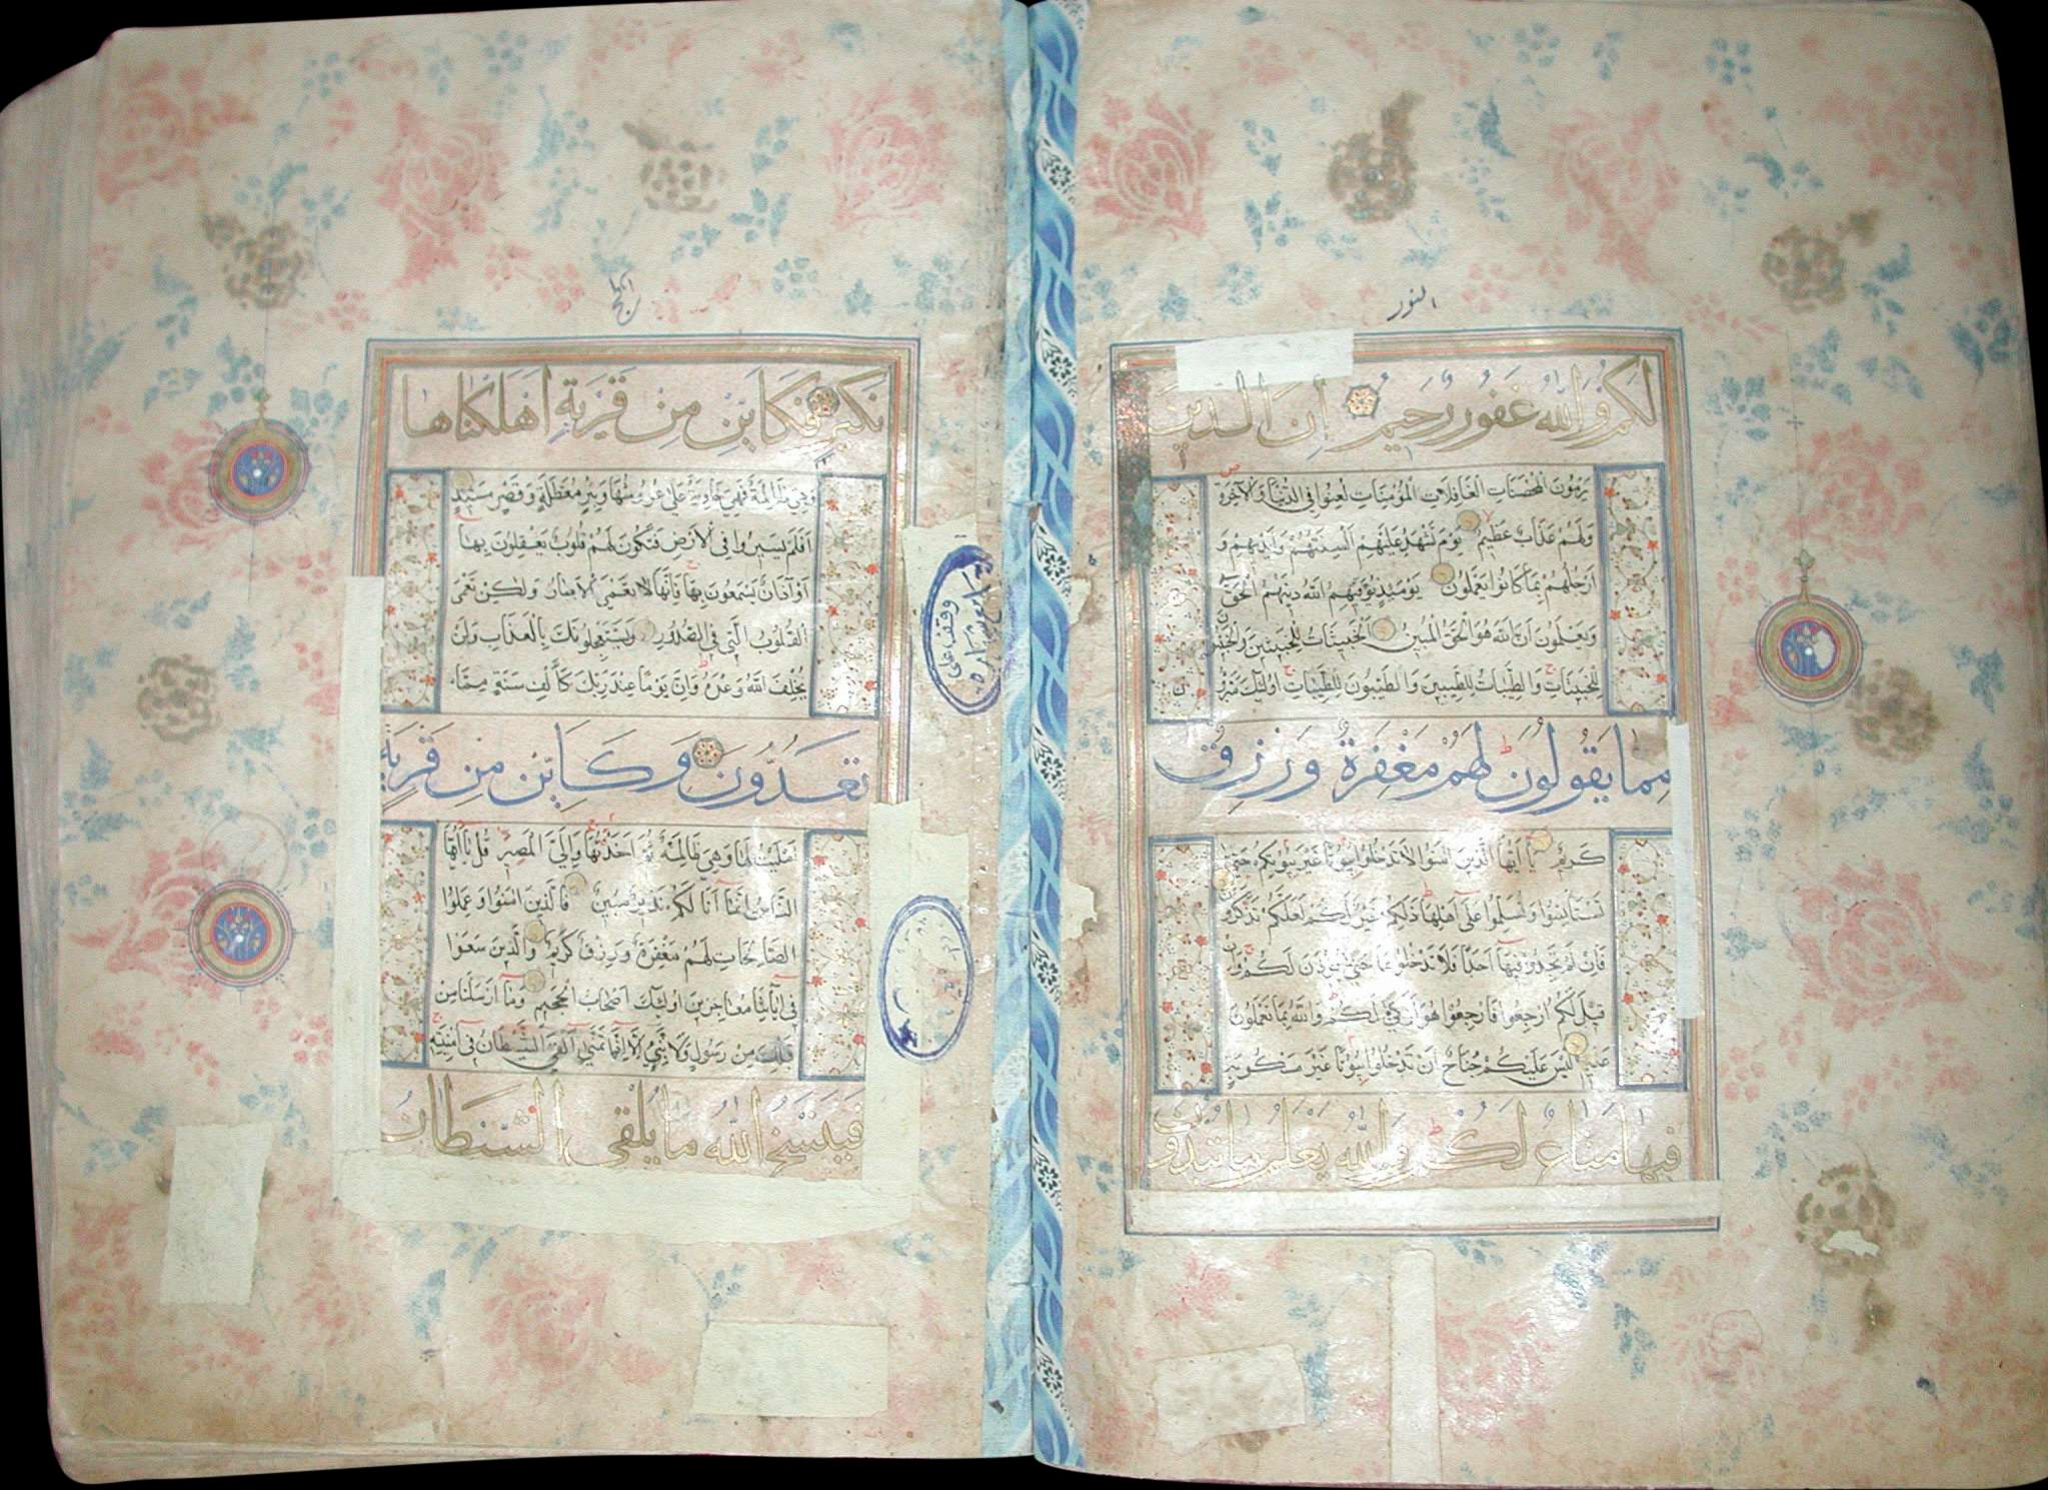 النور
لَكُمْ وَاللّٰهُ غَفُورٌ رَحِيمٌ إِنَّ الَّذِينَ
يَرْمُونَ الْمُحْصَنَاتِ الْغَافِلَاتِ الْمُؤْمِنَاتِ لُعِنُوا فِي الدُّنْيَا وَالْآخِرَةِ
وَلَهُمْ عَذَابٌ عَظِيمٌ يَوْمَ تَشْهَدُ عَلَيْهِمْ أَلْسِنَتُهُمْ وَأَيْدِيهِمْ وَ
أَرْجُلُهُمْ بِمَا كَانُوا يَعْمَلُونَ يَوْمَئِذٍ يُوَفِّيهِمُ اللّٰهُ دِينَهُمُ الْحَقَّ
وَيَعْلَمُونَ أَنَّ اللّٰهَ هُوَ الْحَقُّ الْمُبِينُ الْخَبِيثَاتُ لِلْخَبِيثِينَ وَالْخَبِيثُونَ
لِلْخَبِيثَاتِ وَالطَّيِّبَاتُ لِلطَّيِّبِينَ وَالطَّيِّبُونَ لِلطَّيِّبَاتِ أُولٰئِكَ مُبَرَّؤُنَ
مِمَّا يَقُولُونَ لَهُمْ مَغْفِرَةٌ وَرِزْقٌ
كَرِيمٌ يَا أَيُّهَا الَّذِينَ آمَنُوا لَا تَدْخُلُوا بُيُوتًا غَيْرَ بُيُوتِكُمْ حَتَّى
تَسْتَأْنِسُوا وَتُسَلِّمُوا عَلَى أَهْلِهَا ذٰلِكُمْ خَيْرٌ لَكُمْ لَعَلَّكُمْ تَذَكَّرُونَ
فَإِنْ لَمْ تَجِدُوا فِيهَا أَحَدًا فَلَا تَدْخُلُوهَا حَتَّى يُؤْذَنَ لَكُمْ وَإِنْ
قِيلَ لَكُمُ ارْجِعُوا فَارْجِعُوا هُوَ أَزْكَى لَكُمْ وَاللّٰهُ بِمَا تَعْمَلُونَ
عَلِيمٌ لَيْسَ عَلَيْكُمْ جُنَاحٌ أَنْ تَدْخُلُوا بُيُوتًا غَيْرَ مَسْكُونَةٍ
فِيهَا مَتَاعٌ لَكُمْ وَاللّٰهُ يَعْلَمُ مَا تُبْدُونَ
الحج
نَكِيرِ فَكَأَيِّنْ مِنْ قَرْيَةٍ أَهْلَكْنَاهَا
وَهِيَ ظَالِمَةٌ فَهِيَ خَاوِيَةٌ عَلَى عُرُوشِهَا وَبِئْرٍ مُعَطَّلَةٍ وَقَصْرٍ مَشِيدٍ
أَفَلَمْ يَسِيرُوا فِي الْأَرْضِ فَتَكُونَ لَهُمْ قُلُوبٌ يَعْقِلُونَ بِهَا
أَوْ آذَانٌ يَسْمَعُونَ بِهَا فَإِنَّهَا لَا تَعْمَى الْأَبْصَارُ وَلٰكِنْ تَعْمَى
الْقُلُوبُ الَّتِي فِي الصُّدُورِ وَيَسْتَعْجِلُونَكَ بِالْعَذَابِ وَلَنْ
يُخْلِفَ اللّٰهُ وَعْدَهُ وَإِنَّ يَوْمًا عِنْدَ رَبِّكَ كَأَلْفِ سَنَةٍ مِمَّا
تَعُدُّونَ وَكَأَيِّنْ مِنْ قَرْيَةٍ
أَمْلَيْتُ لَهَا وَهِيَ ظَالِمَةٌ ثُمَّ أَخَذْتُهَا وَإِلَيَّ الْمَصِيرُ قُلْ يَا أَيُّهَا
النَّاسُ إِنَّمَا أَنَا لَكُمْ نَذِيرٌ مُبِينٌ فَالَّذِينَ آمَنُوا وَعَمِلُوا
الصَّالِحَاتِ لَهُمْ مَغْفِرَةٌ وَرِزْقٌ كَرِيمٌ وَالَّذِينَ سَعَوْا
فِي آيَاتِنَا مُعَاجِزِينَ أُولٰئِكَ أَصْحَابُ الْجَحِيمِ وَمَا أَرْسَلْنَا مِنْ
قَبْلِكَ مِنْ رَسُولٍ وَلَا نَبِيٍّ إِلَّا إِذَا تَمَنَّى أَلْقَى الشَّيْطَانُ فِي أُمْنِيَّتِهِ
فَيَنْسَخُ اللّٰهُ مَا يُلْقِي الشَّيْطَانُ